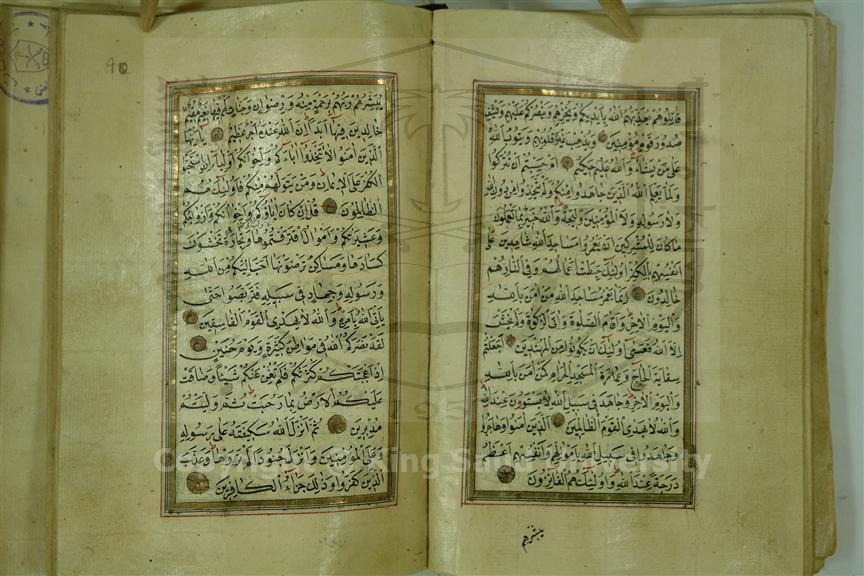 قاتلوهم يعذبهم الله بايديكم ويخزهم وينصركم عليهم ويشف
صدور قوم مؤمنين ويذهب غيظ قلوبهم ويتوب الله
على من يشاء والله عليم حكيم ام حسبتم ان تتركوا
ولما يعلم الله الذين جاهدوا منكم ولم يتخذوا من دون الله
ولا رسوله ولا المؤمنين وليجة والله خبير بما تعملون
ما كان للمشركين ان يعمروا مساجد الله شاهدين على
انفسهم بالكفر اولئك حبطت اعمالهم وفي النار هم
خالدون انما يعمر مساجد الله من امن بالله
واليوم الاخر واقام الصلوة واتى الزكوة ولم يخش
الا الله فعسى اولئك ان يكونوا من المهتدين اجعلتم
سقاية الحاج وعمارة المسجد الحرام كمن امن بالله
واليوم الاخر وجاهد في سبيل الله لا يستوون عند الله
والله لا يهدى القوم الظالمين الذين امنوا وهاجروا
وجاهدوا في سبيل الله باموالهم وانفسهم اعظم
درجة عند الله واولئك هم الفائزون
يبشرهم
90
يبشرهم ربهم برحمة منه ورضوان وجنات لهم فيها نعيم مقيم
خالدين فيها ابدا ان الله عنده اجر عظيم يا ايها
الذين امنوا لا تتخذوا اباءكم واخوانكم اولياء ان استحبوا
الكفر على الايمان ومن يتولهم منكم فاولئك هم
الظالمون قل ان كان اباؤكم وابناؤكم واخوانكم وازواجكم
وعشيرتكم واموال اقترفتموها وتجارة تخشون
كسادها ومساكن ترضونها احب اليكم من الله
ورسوله وجهاد في سبيله فتربصوا حتى
ياتى الله بامره والله لا يهدى القوم الفاسقين
لقد نصركم الله في مواطن كثيرة ويوم حنين
اذ اعجبتكم كثرتكم فلم تغن عنكم شيئا وضاقت
عليكم الارض بما رحبت ثم وليتم
مدبرين ثم انزل الله سكينته على رسوله
وعلى المؤمنين وانزل جنودا لم تروها وعذب
الذين كفروا وذلك جزاء الكافرين
Copyright © King Saud University
1957